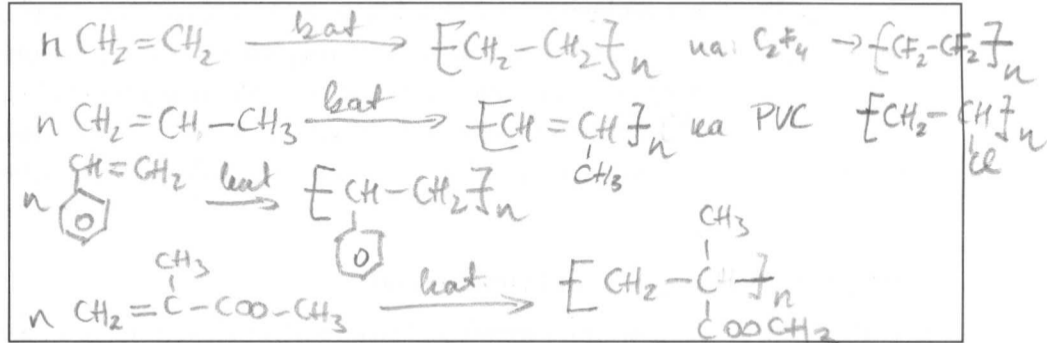 n CH₂=CH₂ —kat→ [CH₂-CH₂]n ua: C₂F₄ → [CF₂-CF₂]n
n CH₂=CH-CH₃ —kat→ [CH=CH]n ua PVC [CH₂-CH]n
CH₃ Cl
CH=CH₂
n —kat→ [CH-CH₂]n
CH₃ CH₃
n CH₂=C-COO-CH₃ —kat→ [CH₂-C]n
COOCH₃